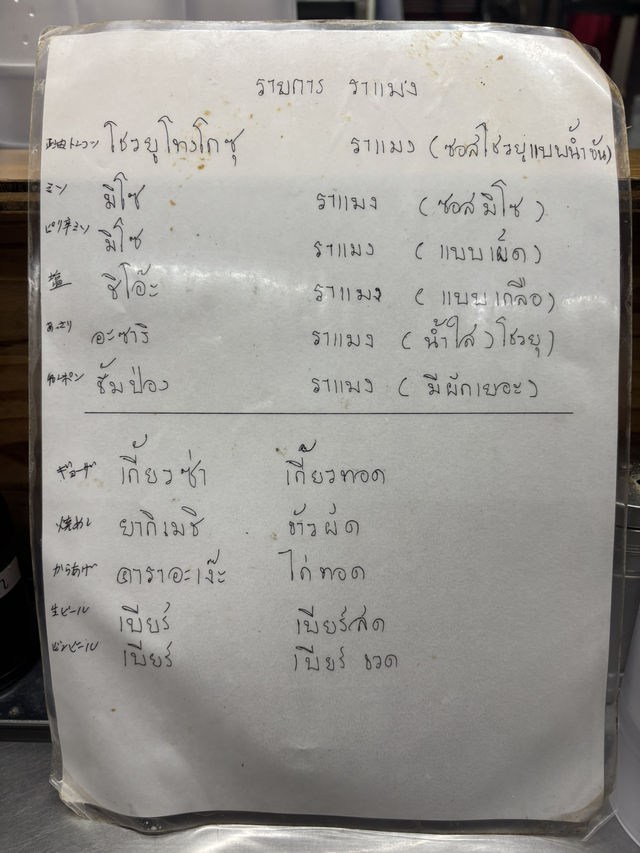 รายการ ราแมง
トンコツ โชวยุโทงโกซุ ราแมง (ซอสโชวยุแบบน้ำข้น)
ミソ มิโซ ราแมง (ซอสมิโซ)
ピリ辛ミソ มิโซ ราแมง (แบบเผ็ด)
塩 ชิโอ๊ะ ราแมง (แบบเกลือ)
あっさり อะซาริ ราแมง (น้ำใส) โชวยุ
チャンポン ชั้มป่อง ราแมง (มีผักเยอะ)
ギョーザ เกี้ยวซ่า เกี้ยวทอด
焼めし ยากิเมชิ ข้าวผัด
からあげ คาราอะเง๊ะ ไก่ทอด
生ビール เบียร์ เบียร์สด
ビンビール เบียร์ เบียร์ ขวด